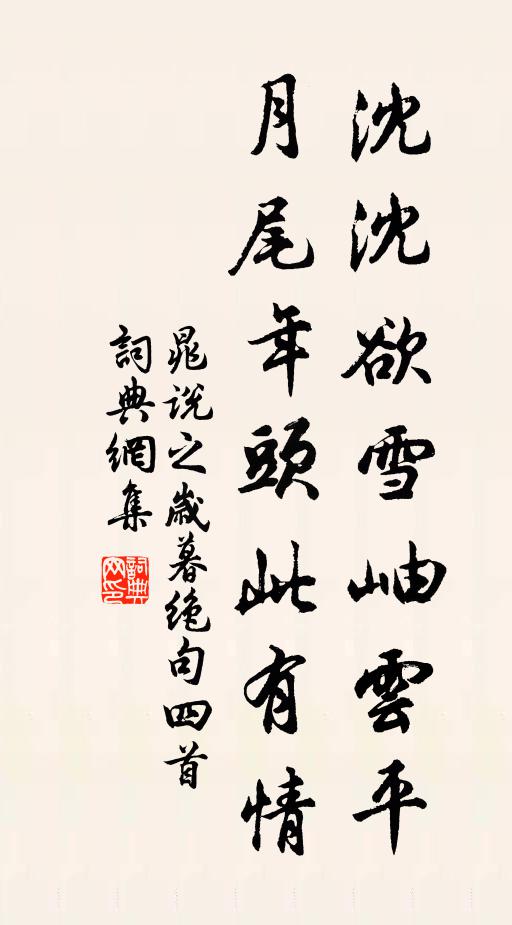 沈沈欲雪岫雲平
月尾年頭此有情
晁說之歲暮絶句四首
詞典網集
詞典网印